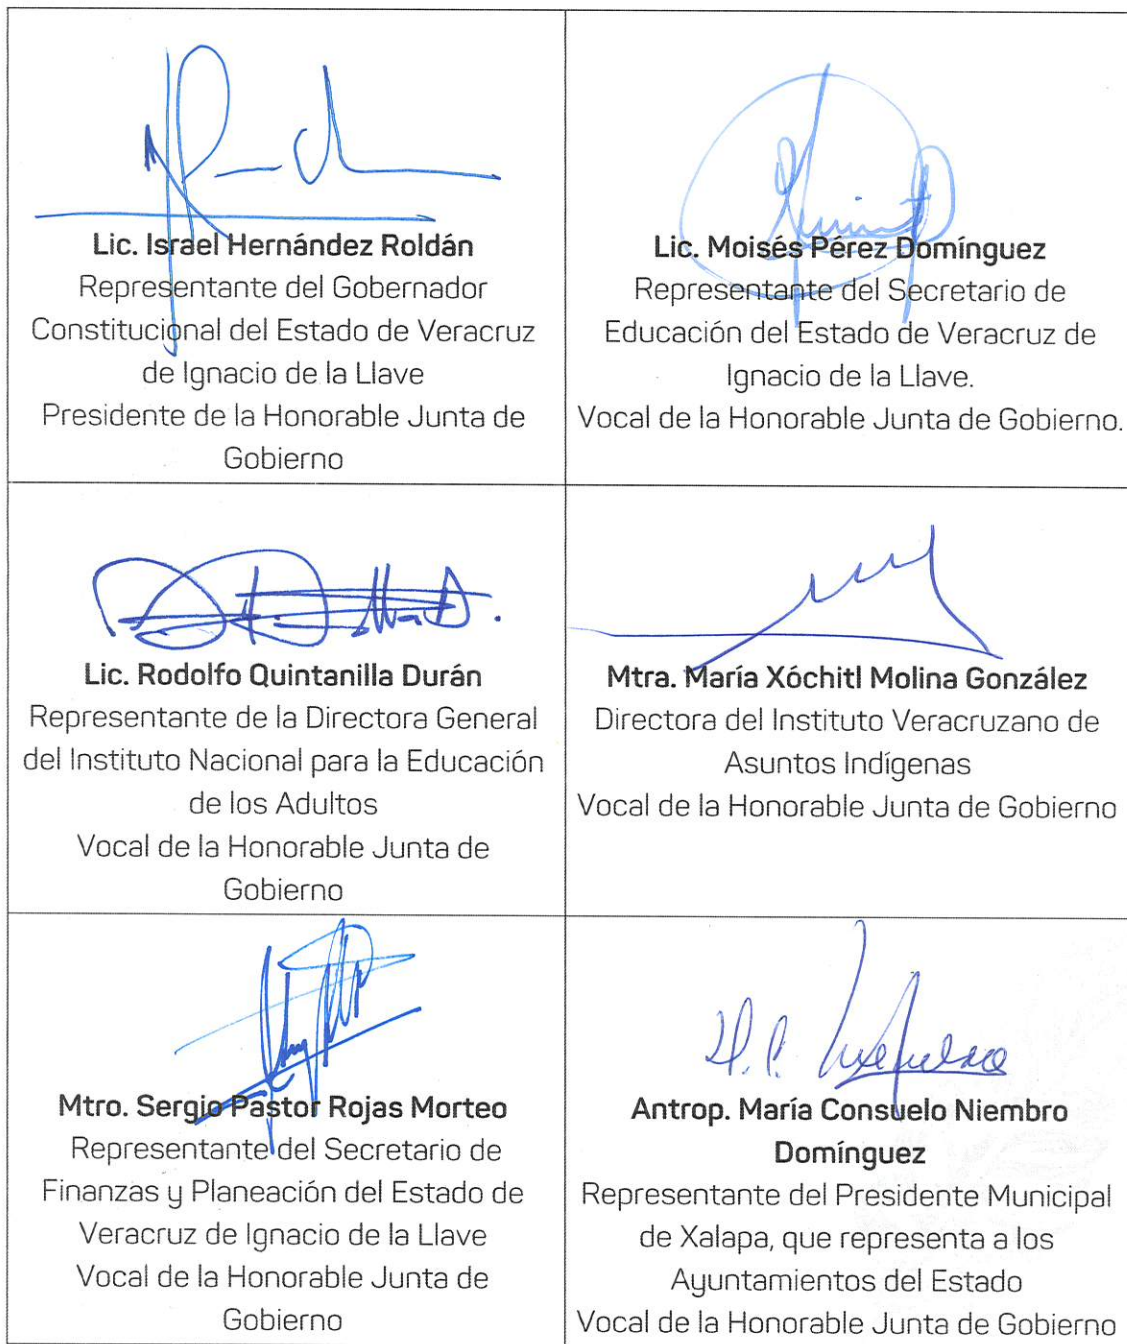 Lic. Israel Hernández Roldán
Representante del Gobernador
Constitucional del Estado de Veracruz
de Ignacio de la Llave
Presidente de la Honorable Junta de
Gobierno
Lic. Moisés Pérez Domínguez
Representante del Secretario de
Educación del Estado de Veracruz de
Ignacio de la Llave.
Vocal de la Honorable Junta de Gobierno.
Lic. Rodolfo Quintanilla Durán
Representante de la Directora General
del Instituto Nacional para la Educación
de los Adultos
Vocal de la Honorable Junta de
Gobierno
Mtra. María Xóchitl Molina González
Directora del Instituto Veracruzano de
Asuntos Indígenas
Vocal de la Honorable Junta de Gobierno
Mtro. Sergio Pastor Rojas Morteo
Representante del Secretario de
Finanzas y Planeación del Estado de
Veracruz de Ignacio de la Llave
Vocal de la Honorable Junta de
Gobierno
Antrop. María Consuelo Niembro
Domínguez
Representante del Presidente Municipal
de Xalapa, que representa a los
Ayuntamientos del Estado
Vocal de la Honorable Junta de Gobierno